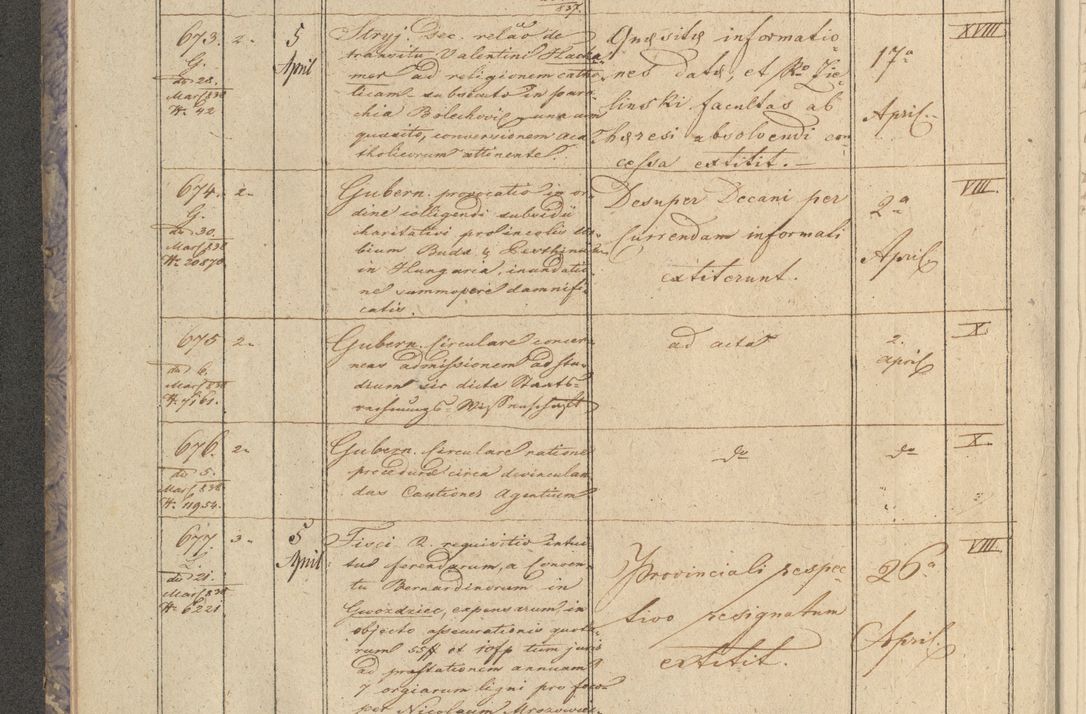 837.
673. 2.
G.
dto 28.
Mart. 838
N. 42
5
April
Stryj. Dec. relão de
transitu Valentini
mer ad religionem catho-
licam subsecuto in paro-
chia Bolechoviẽ una cum
quæsito, conversionem aca-
tholicorum attinente.
Quæsitæ informatio
nes datæ, et Rdo Zie-
linski facultas ab
hæresi absolvendi con
cessa extitit. —
17a
April.
XVIII
674. 2.
G.
dto 30.
Mart. 838
N. 20870
Gubern. provocatio in or-
dine colligendi subsidii
charitativi pro incolis ur-
bium Budæ &
in Hungaria, inundatio-
ne summopere damnifi-
catis.
Desuper Decani per
Currendam informati
extiterunt.
2a
April
VIII.
675 2.
dto 6.
Mart. 838
N. 7161.
Gubern. Circulare concer-
nens admissionem ad stu-
dium sic dictæ Staats-
rechnungs-Wissenschaft
ad acta
2.
April
X
676. 2.
dto 5.
Mart. 838
N. 11954.
Gubern. Circulare ratione
proceduræ circa devinculan-
das Cautiones Agentium
dto
dto
X.
677 3.
dto 21.
Mart. 838
N. 6221
5
April
Fisci R. requisitio intui-
tus ferendarum, a Conven-
tu Bernardinorum in
Gwoździec, expensarum in
objecto assecurationis quota-
rum 55 ff et 10 fp tum juris
ad præstationem annuam
7 orgiarum ligni pro foco
per Nicolaum
Provinciali respec-
tivo resignatum
extitit.
26a
April.
VIII.